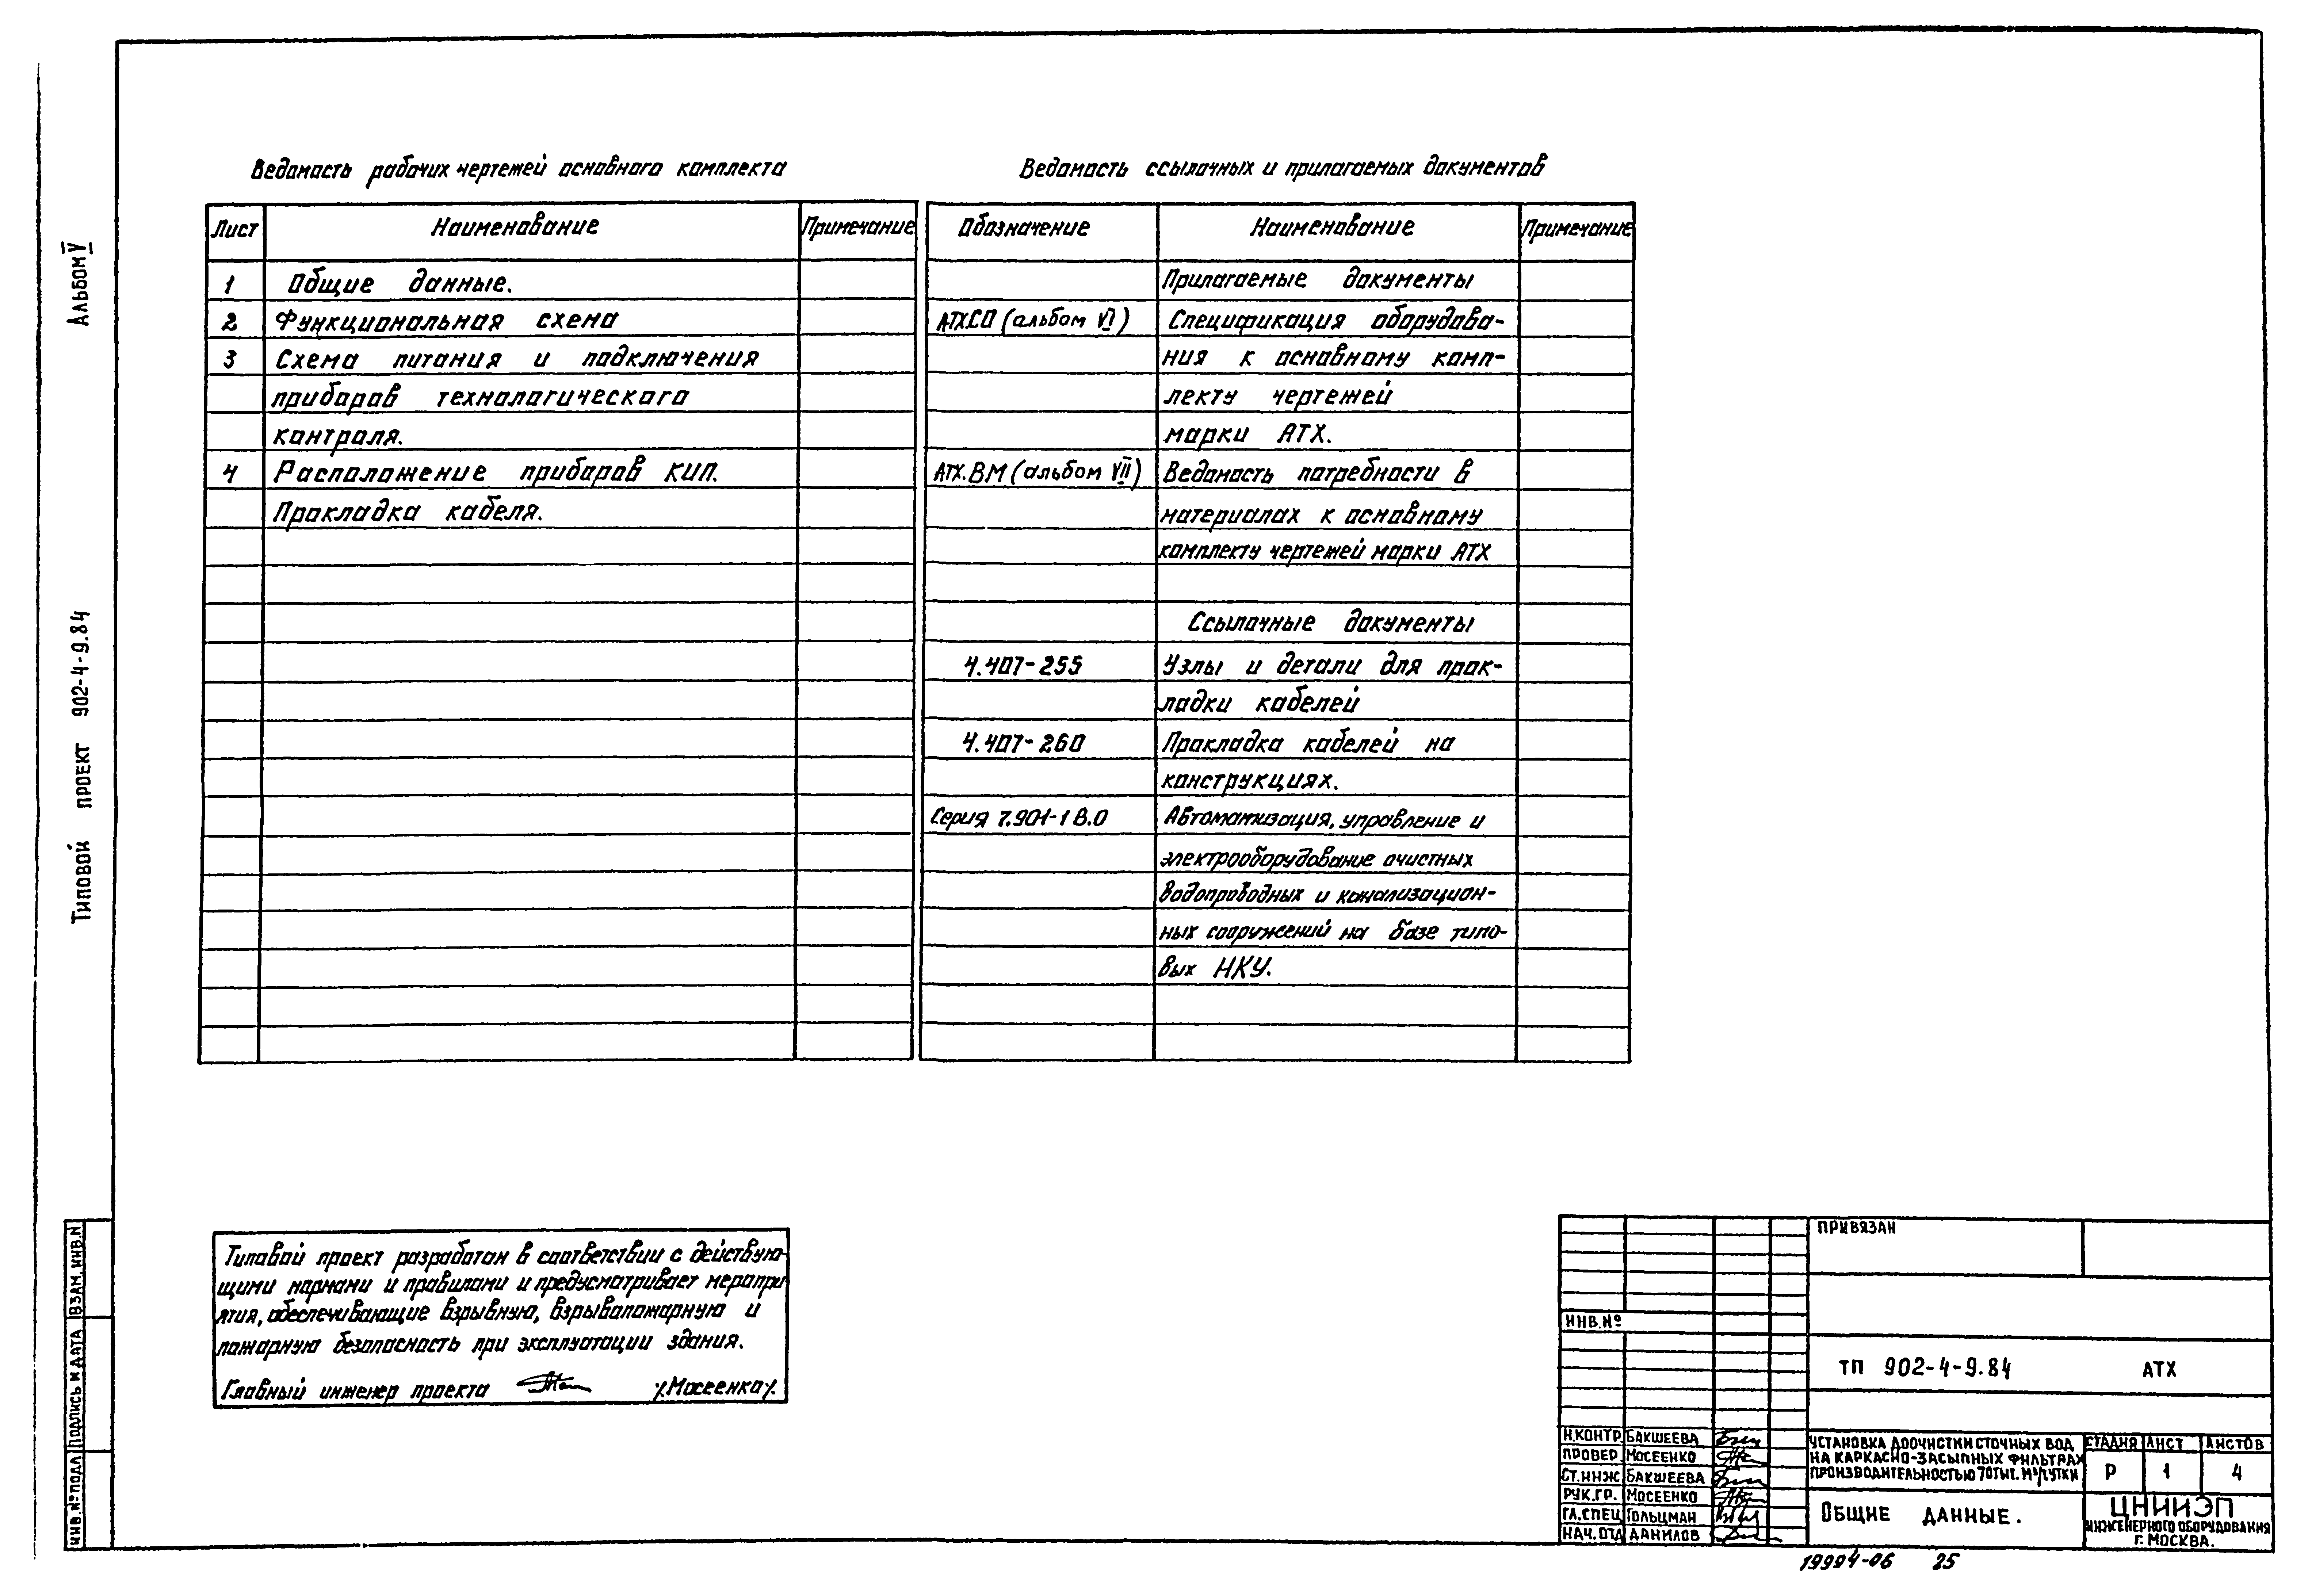 Альбом V
Типовой проект 902-4-9.84
Ведомость рабочих чертежей основного комплекта
Лист Наименование Примечание
1 Общие данные.
2 Функциональная схема
3 Схема питания и подключения
приборов технологического
контроля.
4 Расположение приборов КИП.
Прокладка кабеля.
Ведомость ссылочных и прилагаемых документов
Обозначение Наименование Примечание
Прилагаемые документы
АТХ.СО (альбом VI) Спецификация оборудова-
ния к основному комп-
лекту чертежей
марки АТХ.
АТХ.ВМ (альбом VII) Ведомость потребности в
материалах к основному
комплекту чертежей марки АТХ
Ссылочные документы
4.407-255 Узлы и детали для прок-
ладки кабелей
4.407-260 Прокладка кабелей на
конструкциях.
Серия 7.901-1 В.0 Автоматизация, управление и
электрооборудование очистных
водопроводных и канализацион-
ных сооружений на базе типо-
вых НКУ.
Типовой проект разработан в соответствии с действую-
щими нормами и правилами и предусматривает меропри-
ятия, обеспечивающие взрывную, взрывопожарную и
пожарную безопасность при эксплуатации здания.
Главный инженер проекта /Мосеенко/.
ВЗАМ. ИНВ. N
ПОДПИСЬ И ДАТА
ИНВ. № ПОДЛ
ПРИВЯЗАН
ИНВ. №
ТП 902-4-9.84 АТХ
Н.КОНТР. БАКШЕЕВА
ПРОВЕР. МОСЕЕНКО
СТ.ИНЖ БАКШЕЕВА
РУК.ГР. МОСЕЕНКО
ГЛ.СПЕЦ ГОЛЬЦМАН
НАЧ.ОТД ДАНИЛОВ
УСТАНОВКА ДООЧИСТКИ СТОЧНЫХ ВОД
НА КАРКАСНО-ЗАСЫПНЫХ ФИЛЬТРАХ
ПРОИЗВОДИТЕЛЬНОСТЬЮ 70 ТЫС. М³/СУТКИ
СТАДИЯ ЛИСТ ЛИСТОВ
Р 1 4
ОБЩИЕ ДАННЫЕ.
ЦНИИЭП
ИНЖЕНЕРНОГО ОБОРУДОВАНИЯ
Г. МОСКВА.
19994-06 25